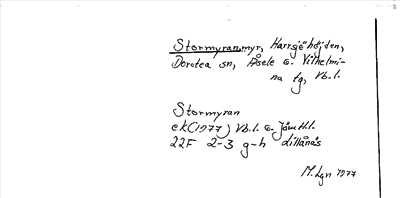 Stormyran, myr, Harrsjöhöjden,
Dorotea sn, Åsele o. Vilhelmi-
na tg, Vb.l.
Stormyran
ek(1977) Vb.l. o. Jämtl.l.
22F 2-3 g-h
M. Lgn 1977